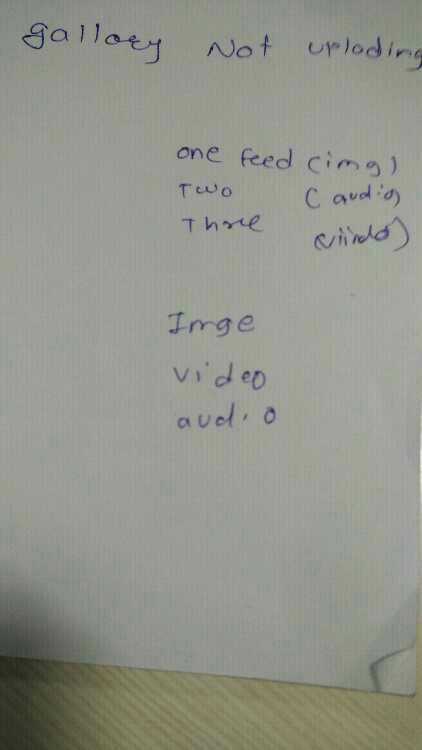 gallery Not uploding
one feed (img)
Two (audio)
Three (viindo)
Imge
video
audio